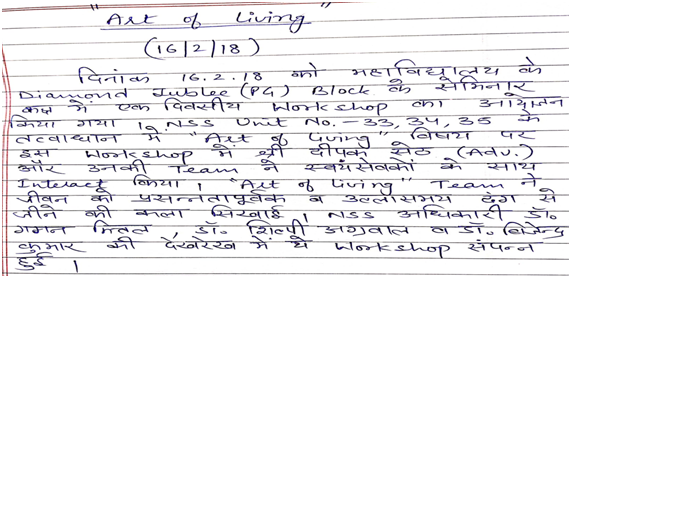 "Art of Living"
(16/2/18)
दिनांक 16.2.18 को महाविद्यालय के
Diamond Jublee (PG) Block के सेमिनार
कक्ष में एक दिवसीय Workshop का आयोजन
किया गया । NSS Unit No.-33, 34, 35 के
तत्वाधान में "Art of Living" विषय पर
इस Workshop में श्री दीपक सेठ (Adv.)
और उनकी Team ने स्वयंसेवकों के साथ
Interact किया । "Art of Living" Team ने
जीवन को प्रसन्नतापूर्वक व उल्लासमय ढंग से
जीने की कला सिखाई । NSS अधिकारी डॉ०
गगन मित्तल, डॉ० शिल्पी अग्रवाल व डॉ० बिजेन्द्र
कुमार की देखरेख में ये Workshop संपन्न
हुई ।